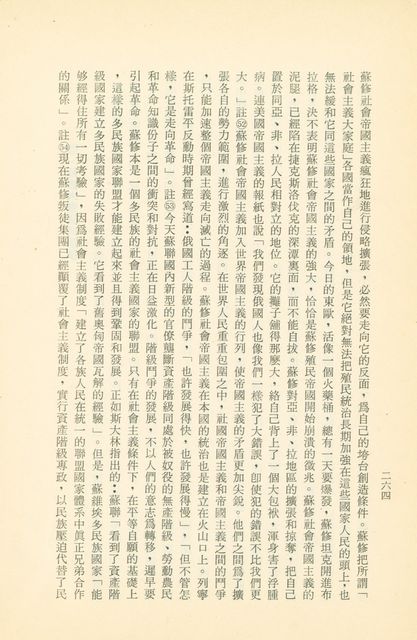 二六四
蘇修社會帝國主義瘋狂地進行侵略擴張，必然要走向它的反面，爲自己的垮台創造條件。蘇修把所謂「
社會主義大家庭」各國當作自己的領地，但是它絕對無法把殖民統治長期加強在這些國家人民的頭上，也
無法緩和它同這些國家之間的矛盾。今日的東歐，活像一個火藥桶，總有一天要爆發，蘇修坦克開進布
拉格，決不表明蘇修社會帝國主義的強大，恰恰是蘇修殖民帝國開始崩潰的徵兆。蘇修社會帝國主義的
泥腿，已經陷在捷克斯洛伐克的深潭裏面，而不能自拔。蘇修對亞、非、拉地區的擴張和掠奪，把自己
置於同亞、非、拉人民相對立的地位。它的攤子舖得那麼大，給自己背上了一個大包袱，渾身害了浮腫
病。連美國帝國主義的報紙也說「我們發現俄國人也像我們一樣犯了大錯誤，卽使犯的錯誤不比我們更
大。」註㊾蘇修社會帝國主義加入世界帝國主義的行列，使帝國主義的矛盾更加尖銳。他們之間爲了擴
張各自的勢力範圍，進行激烈的角逐。在世界人民重重包圍之中，社國帝國主義和帝國主義之間的鬥爭
，只能加速整個帝國主義走向滅亡的過程。蘇修社會帝國主義在本國的統治也是建立在火山口上。列寧
在斯托雷平反動時期曾經寫道：俄國工人階級的鬥爭，「也許發展得快，也許發展得慢」，「但不管怎
樣，它是走向革命」。註 今天蘇聯國內新型的官僚壟斷資產階級同處於被奴役的無產階級、勞動農民
和革命知識份子之間的衝突和對抗，正在日益激化。階級鬥爭的發展，不以人們的意志爲轉移，遲早要
引起革命。蘇修本是一個多民族的社會主義國家的聯盟。只有在社會主義條件下，在平等自願的基礎上
，這樣的多民族國家聯盟才能建立起來並且得到鞏固和發展。正如斯大林指出的：蘇聯「看到了資產階
級國家建立多民族國家的失敗經驗。它看到了舊奧匈帝國瓦解的經驗」。但是，蘇維埃多民族國家「能
夠經得住所有一切考驗」，因爲社會主義制度「建立了各族人民在統一的聯盟國家體系中眞正兄弟合作
的關係」。註 現在蘇修叛徒集團已經顚覆了社會主義制度，實行資產階級專政，以民族壓迫代替了民